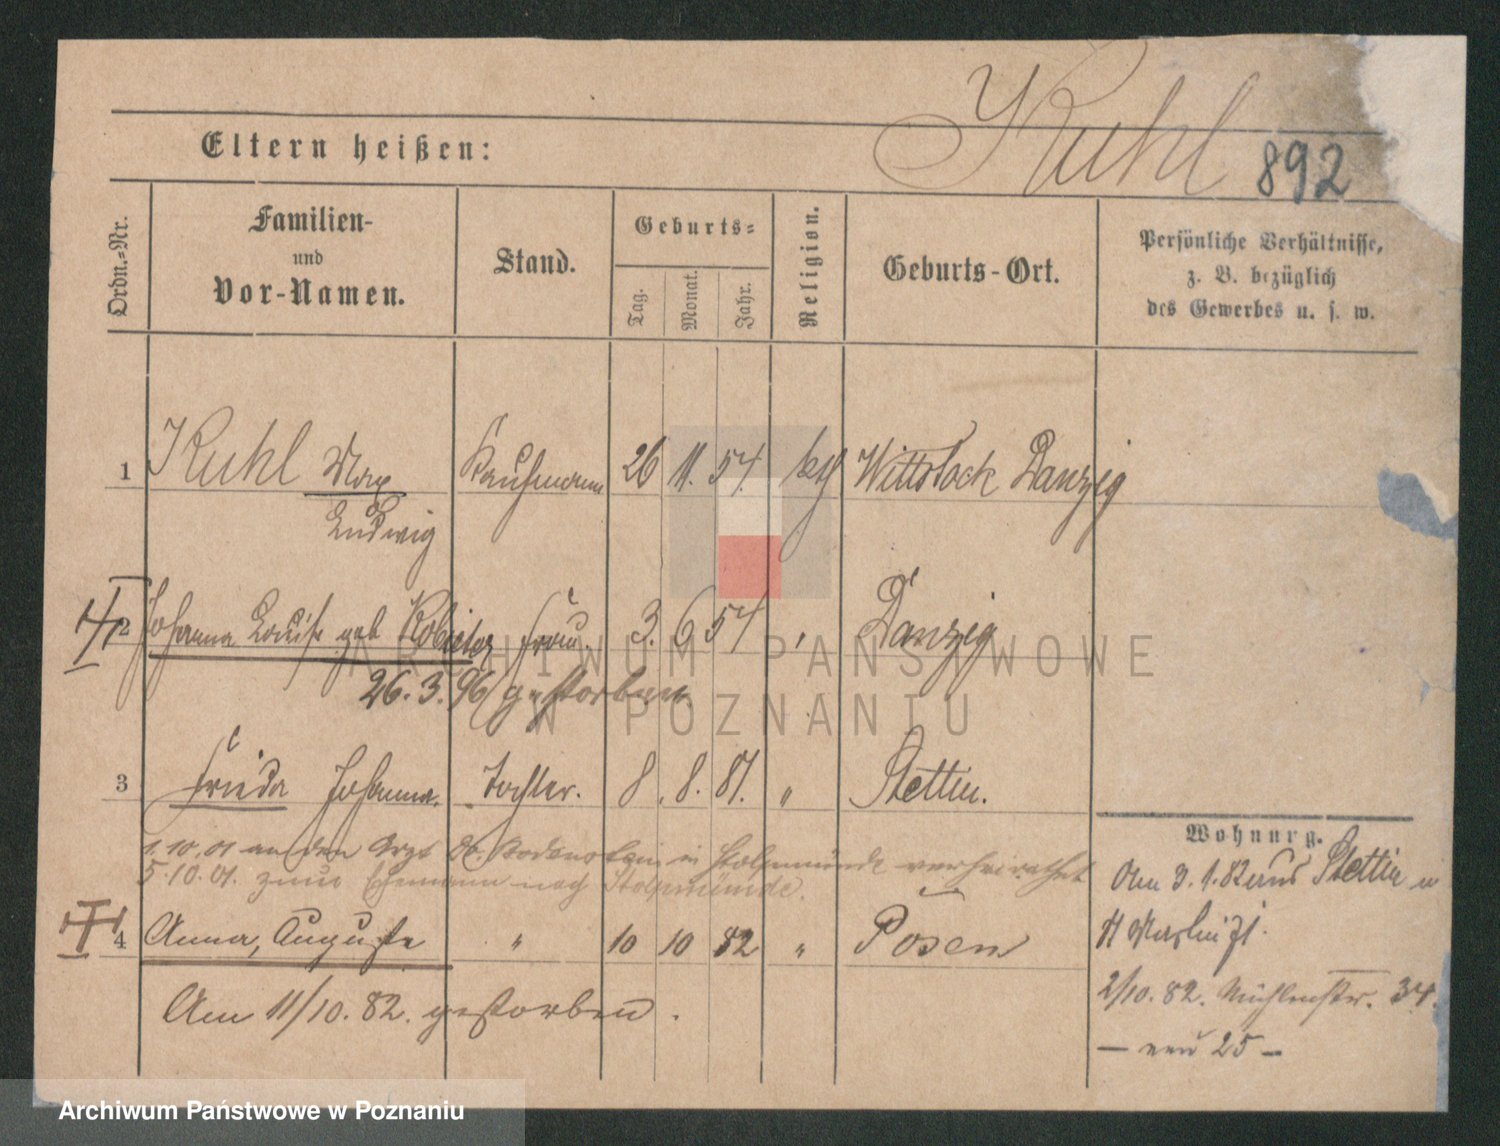 Kuhl 892
Eltern heißen:
Ordn.-Nr.
Familien-
und
Vor-Namen.
Stand.
Geburts-
Tag.
Monat.
Jahr.
Religion.
Geburts-Ort.
Persönliche Verhältnisse,
z. B. bezüglich
des Gewerbes u. s. w.
1 Kuhl Max Kaufmann 26 11. 54. kth Wittstock Danzig
Ludwig
2 Johanna Louise geb Frau. 3. 6 57 " Danzig
26.3.96 gestorben.
3 Frieda Johanna. Tochter. 8. 8. 81. " Stettin.
1.10.01 an den Arzt Dr. Bodenstein in Stolpmünde verheirathet
5.10.01. zum Ehemann nach Stolpmünde.
4 Anna, Auguste " 10 10 82 " Posen
Am 11/10. 82. gestorben.
Wohnung.
Am 3.1.82 aus Stettin
2/10. 82. Mühlenstr. 34.
— neu 25 —
ARCHIWUM PAŃSTWOWE
W POZNANIU
Archiwum Państwowe w Poznaniu